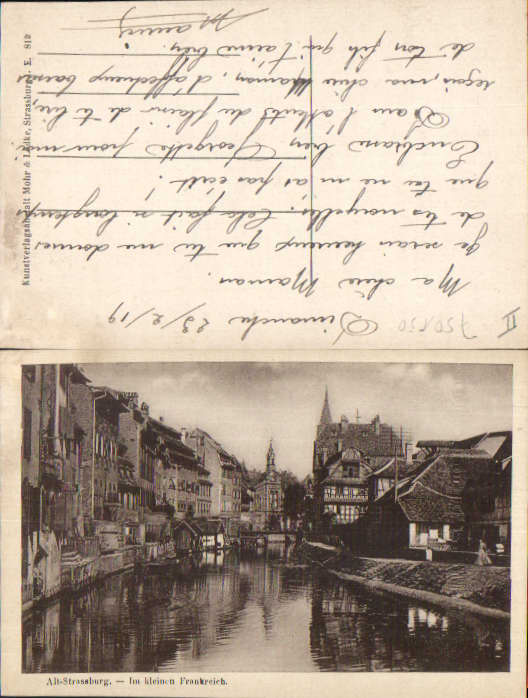 Dimanche 23/2/19
Ma chère Maman.
Je serais heureux que tu me donnes
de tes nouvelles. Cela fait si longtemps
que tu ne m'as pas écrit!
Embrasse bien Georgette pour moi.
Dans l'attente du plaisir de te lire,
reçois, ma chère Maman, d'affectueux baisers
de ton fils qui t'aime bien.
II
750830
Kunstverlagsanstalt Mohr & Lüdke, Strassburg i. E. 819
Alt-Strassburg. — Im kleinen Frankreich.